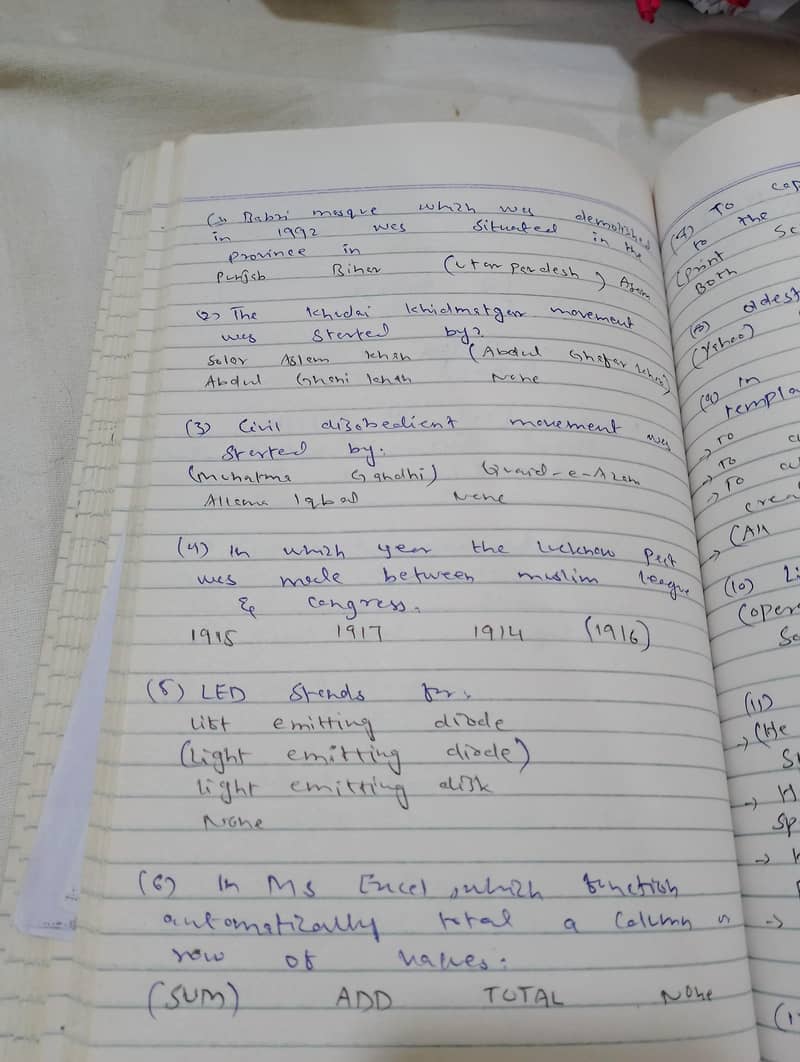 (1) Babri mosque which was demolished
in 1992 was situated in the
province in
Punjab Bihar (Utar Perdesh) Asam
(2) The Khudai Khidmatgar movement
was started by?
Solar Aslam Khan (Abdul Ghafar Khan)
Abdul Ghani Khan None
(3) Civil disobedient movement was
started by:
(Muhatma Gandhi) Quaid-e-Azam
Allama Iqbal None
(4) In which year the lucknow pact
was made between muslim league
& congress.
1915 1917 1914 (1916)
(5) LED stands for:
List emitting diode
(Light emitting diode)
light emitting disk
None
(6) In MS Excel, which function
automatically total a column or
row of values:
(SUM) ADD TOTAL None
To
to the
(print
Both
oldest
(Yahoo)
(9) In
→ To
→ To
→ To
→ (All
(10)
(11)
→ (He
→ H
→
→